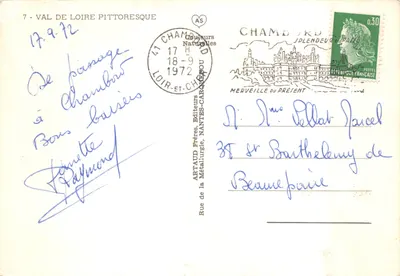 7 - VAL DE LOIRE PITTORESQUE
17.9.72
De passage
à Chambord
Bons baisers
Ginette
Raymond
AS
Couleurs
Naturelles
ARTAUD Frères, Editeurs
Rue de la Métallurgie, NANTES-CARQUEFOU
41 CHAMBORD
17 H
18-9
1972
LOIR-ET-CHER
CHAMBORD
SPLENDEUR
MERVEILLE du PRÉSENT
0,30
M. Mme Pellat Marcel
38 St Barthelemy de
Beaurepaire